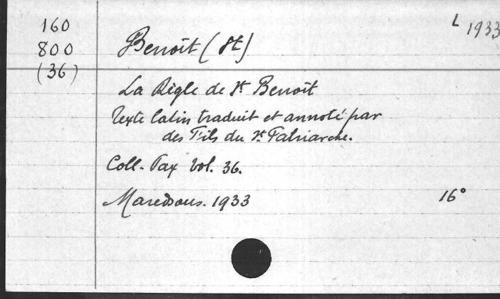 160
800
(36)
L 1933
Benoît (St)
La Règle de St Benoît
Texte latin traduit et annoté par
des Fils du St Patriarche.
Coll. Pax Vol. 36.
Maredsous. 1933 16°